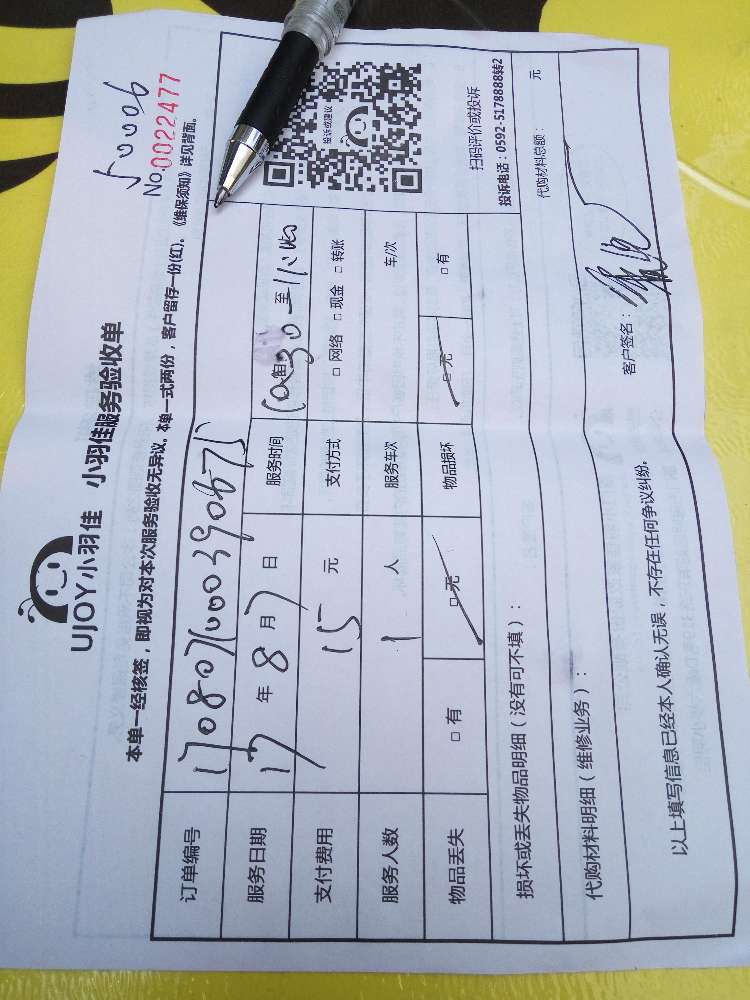 50006
UJOY小羽佳 小羽佳服务验收单
No.0022477
本单一经核签，即视为对本次服务验收无异议。本单一式两份，客户留存一份(红)。《维保须知》详见背面。
订单编号
服务日期 17 年 8 月 7 日 服务时间 至
支付费用 15 元 支付方式 □ 网络 □ 现金 □ 转账
服务人数 1 人 服务车次 车/次
物品丢失 □ 有 □ 无 物品损坏 □ 无 □ 有
投诉或建议
扫码评价或投诉
投诉电话：0592-5178888转2
损坏或丢失物品明细（没有可不填）：
代购材料明细（维修业务）： 代购材料总额： 元
以上填写信息已经本人确认无误，不存在任何争议纠纷。
客户签名：